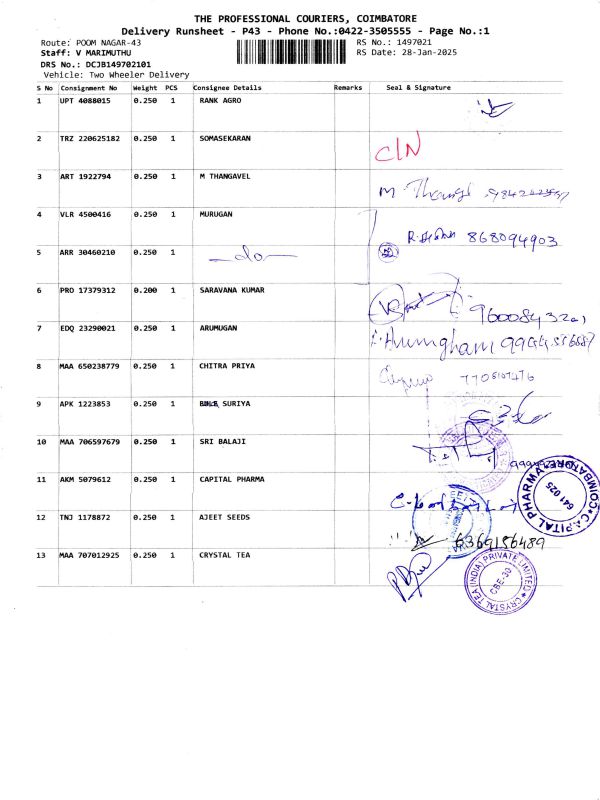 THE PROFESSIONAL COURIERS, COIMBATORE
Delivery Runsheet - P43 - Phone No.:0422-3505555 - Page No.:1
Route: POOM NAGAR-43 RS No.: 1497021
Staff: V MARIMUTHU RS Date: 28-Jan-2025
DRS No.: DCJB149702101
Vehicle: Two Wheeler Delivery
S No Consignment No Weight PCS Consignee Details Remarks Seal & Signature
1 UPT 4088015 0.250 1 RANK AGRO
2 TRZ 220625182 0.250 1 SOMASEKARAN
CIN
3 ART 1922794 0.250 1 M THANGAVEL
4 VLR 4500416 0.250 1 MURUGAN
868094903
5 ARR 30460210 0.250 1 —do—
6 PRO 17379312 0.200 1 SARAVANA KUMAR
7 EDQ 23290021 0.250 1 ARUMUGAN
8 MAA 650238779 0.250 1 CHITRA PRIYA
9 APK 1223853 0.250 1 SURIYA
10 MAA 706597679 0.250 1 SRI BALAJI
11 AKM 5079612 0.250 1 CAPITAL PHARMA
CAPITAL PHARMA COIMBATORE 641 025
12 TNJ 1178872 0.250 1 AJEET SEEDS
6369156489
13 MAA 707012925 0.250 1 CRYSTAL TEA
CRYSTAL TEA (INDIA) PRIVATE LIMITED CBE-30